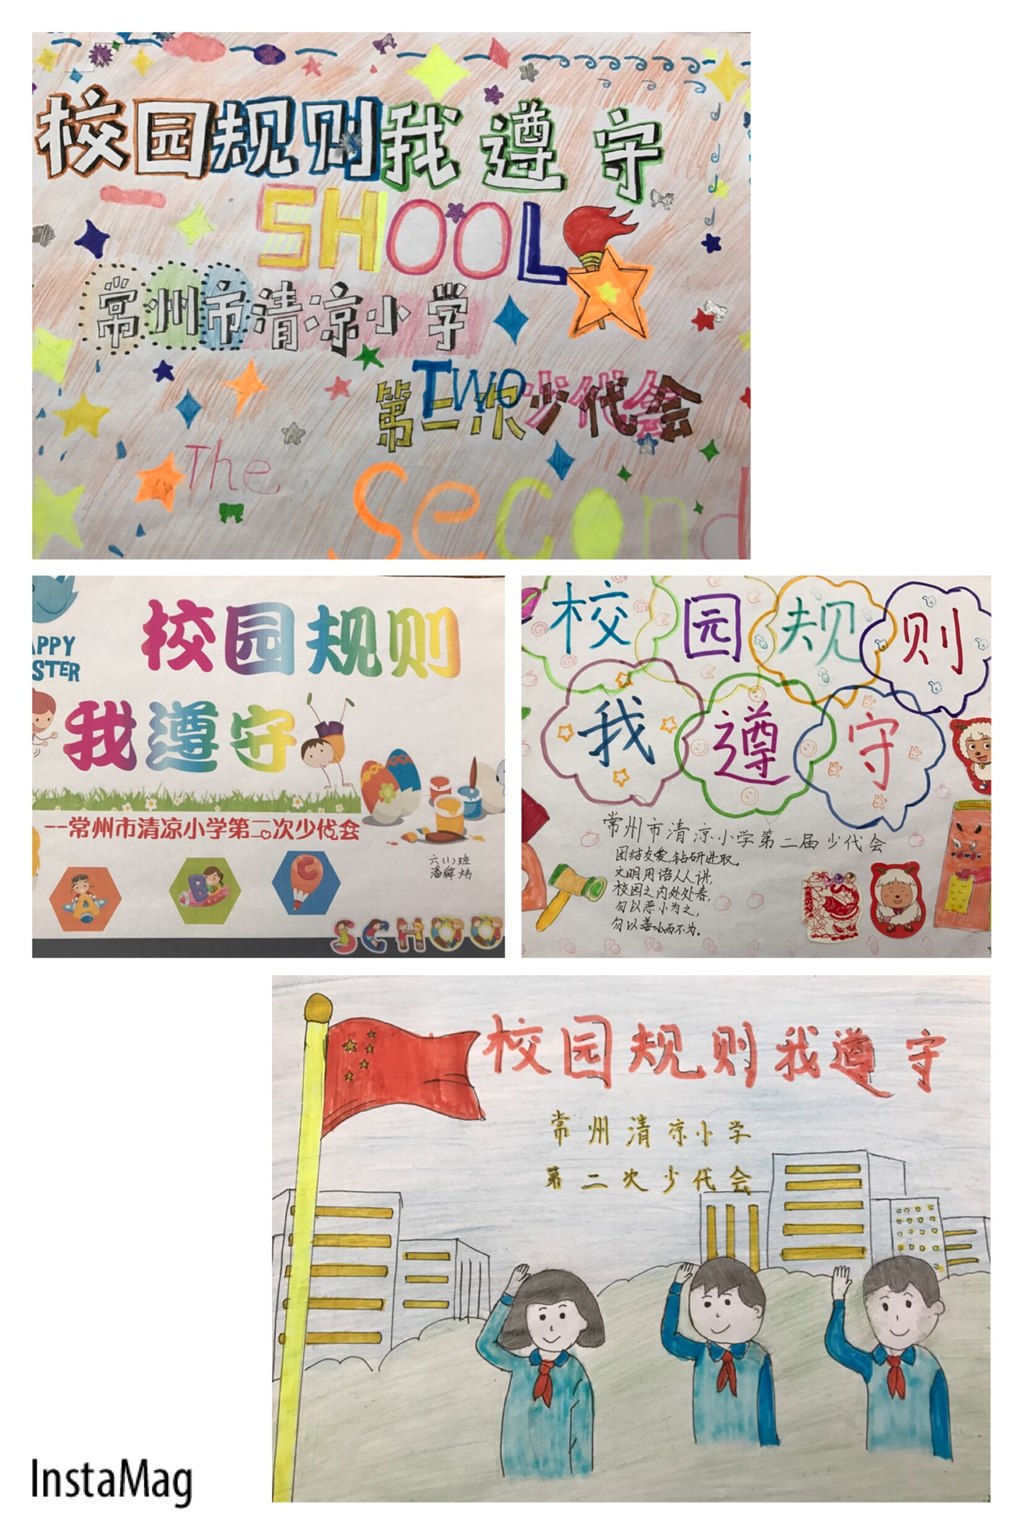 校园规则我遵守
SHOOL
常州市清凉小学
TWO
第二次少代会
The
Second
APPY
STER
校园规则
我遵守
--常州市清凉小学第二次少代会
六(1)班
A
B
C
SCHOO
校园规则
我遵守
常州市清凉小学第二届少代会
团结友爱,钻研进取。
文明用语人人讲,
校园之内处处春,
勿以恶小为之,
勿以善小而不为。
校园规则我遵守
常州清凉小学
第二次少代会
InstaMag